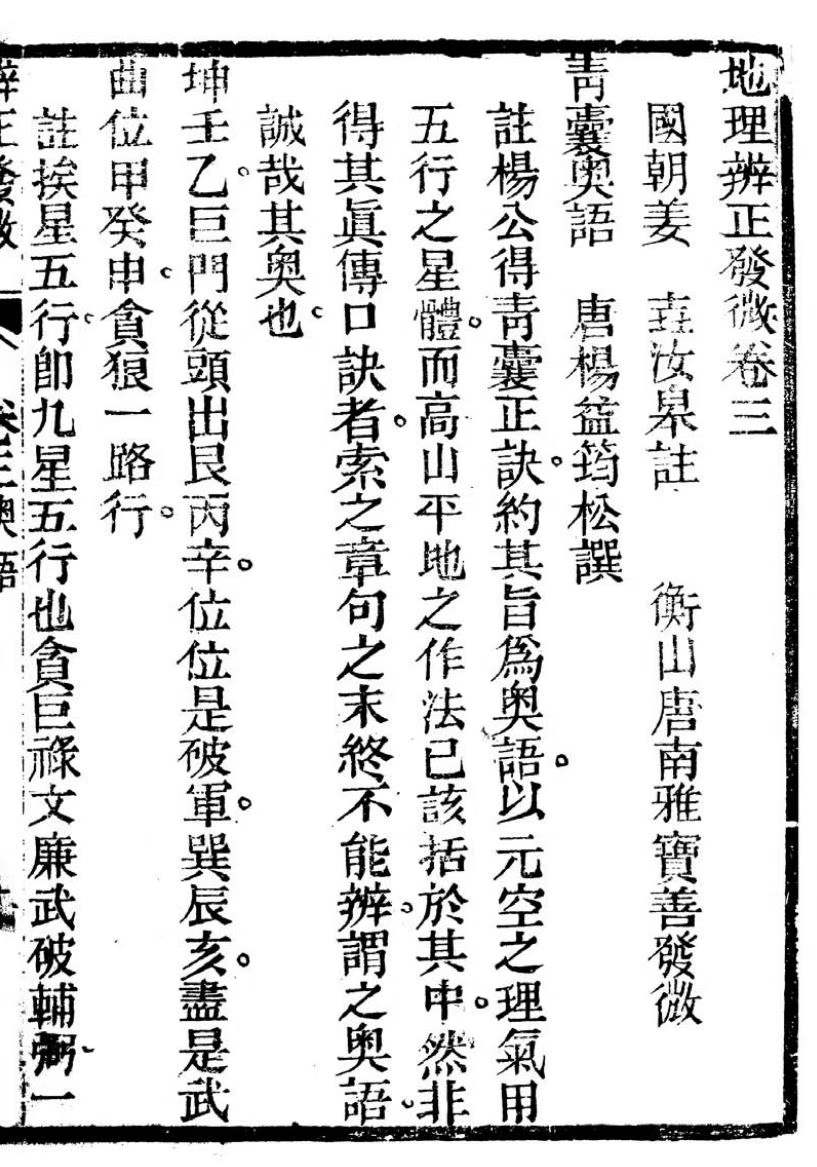 地理辨正發微卷三
國朝姜 垚汝臯註 衡山唐南雅寶善發微
靑囊奧語 唐楊益筠松譔
註楊公得靑囊正訣。約其旨爲奧語。以元空之理氣用
五行之星體。而高山平地之作法已該括於其中。然非
得其眞傳口訣者。索之章句之末終不能辨。謂之奧語。
誠哉其奧也。
坤壬乙。巨門從頭出艮丙辛。位位是破軍。巽辰亥。盡是武
曲位甲癸申。貪狼一路行。
註挨星五行。卽九星五行也貪巨祿文廉武破輔弼。一
辨正發微 卷三奧語